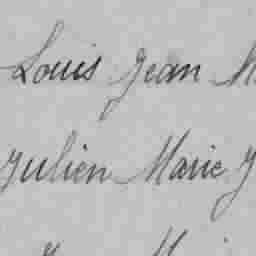 Louis Jean
Julien Marie